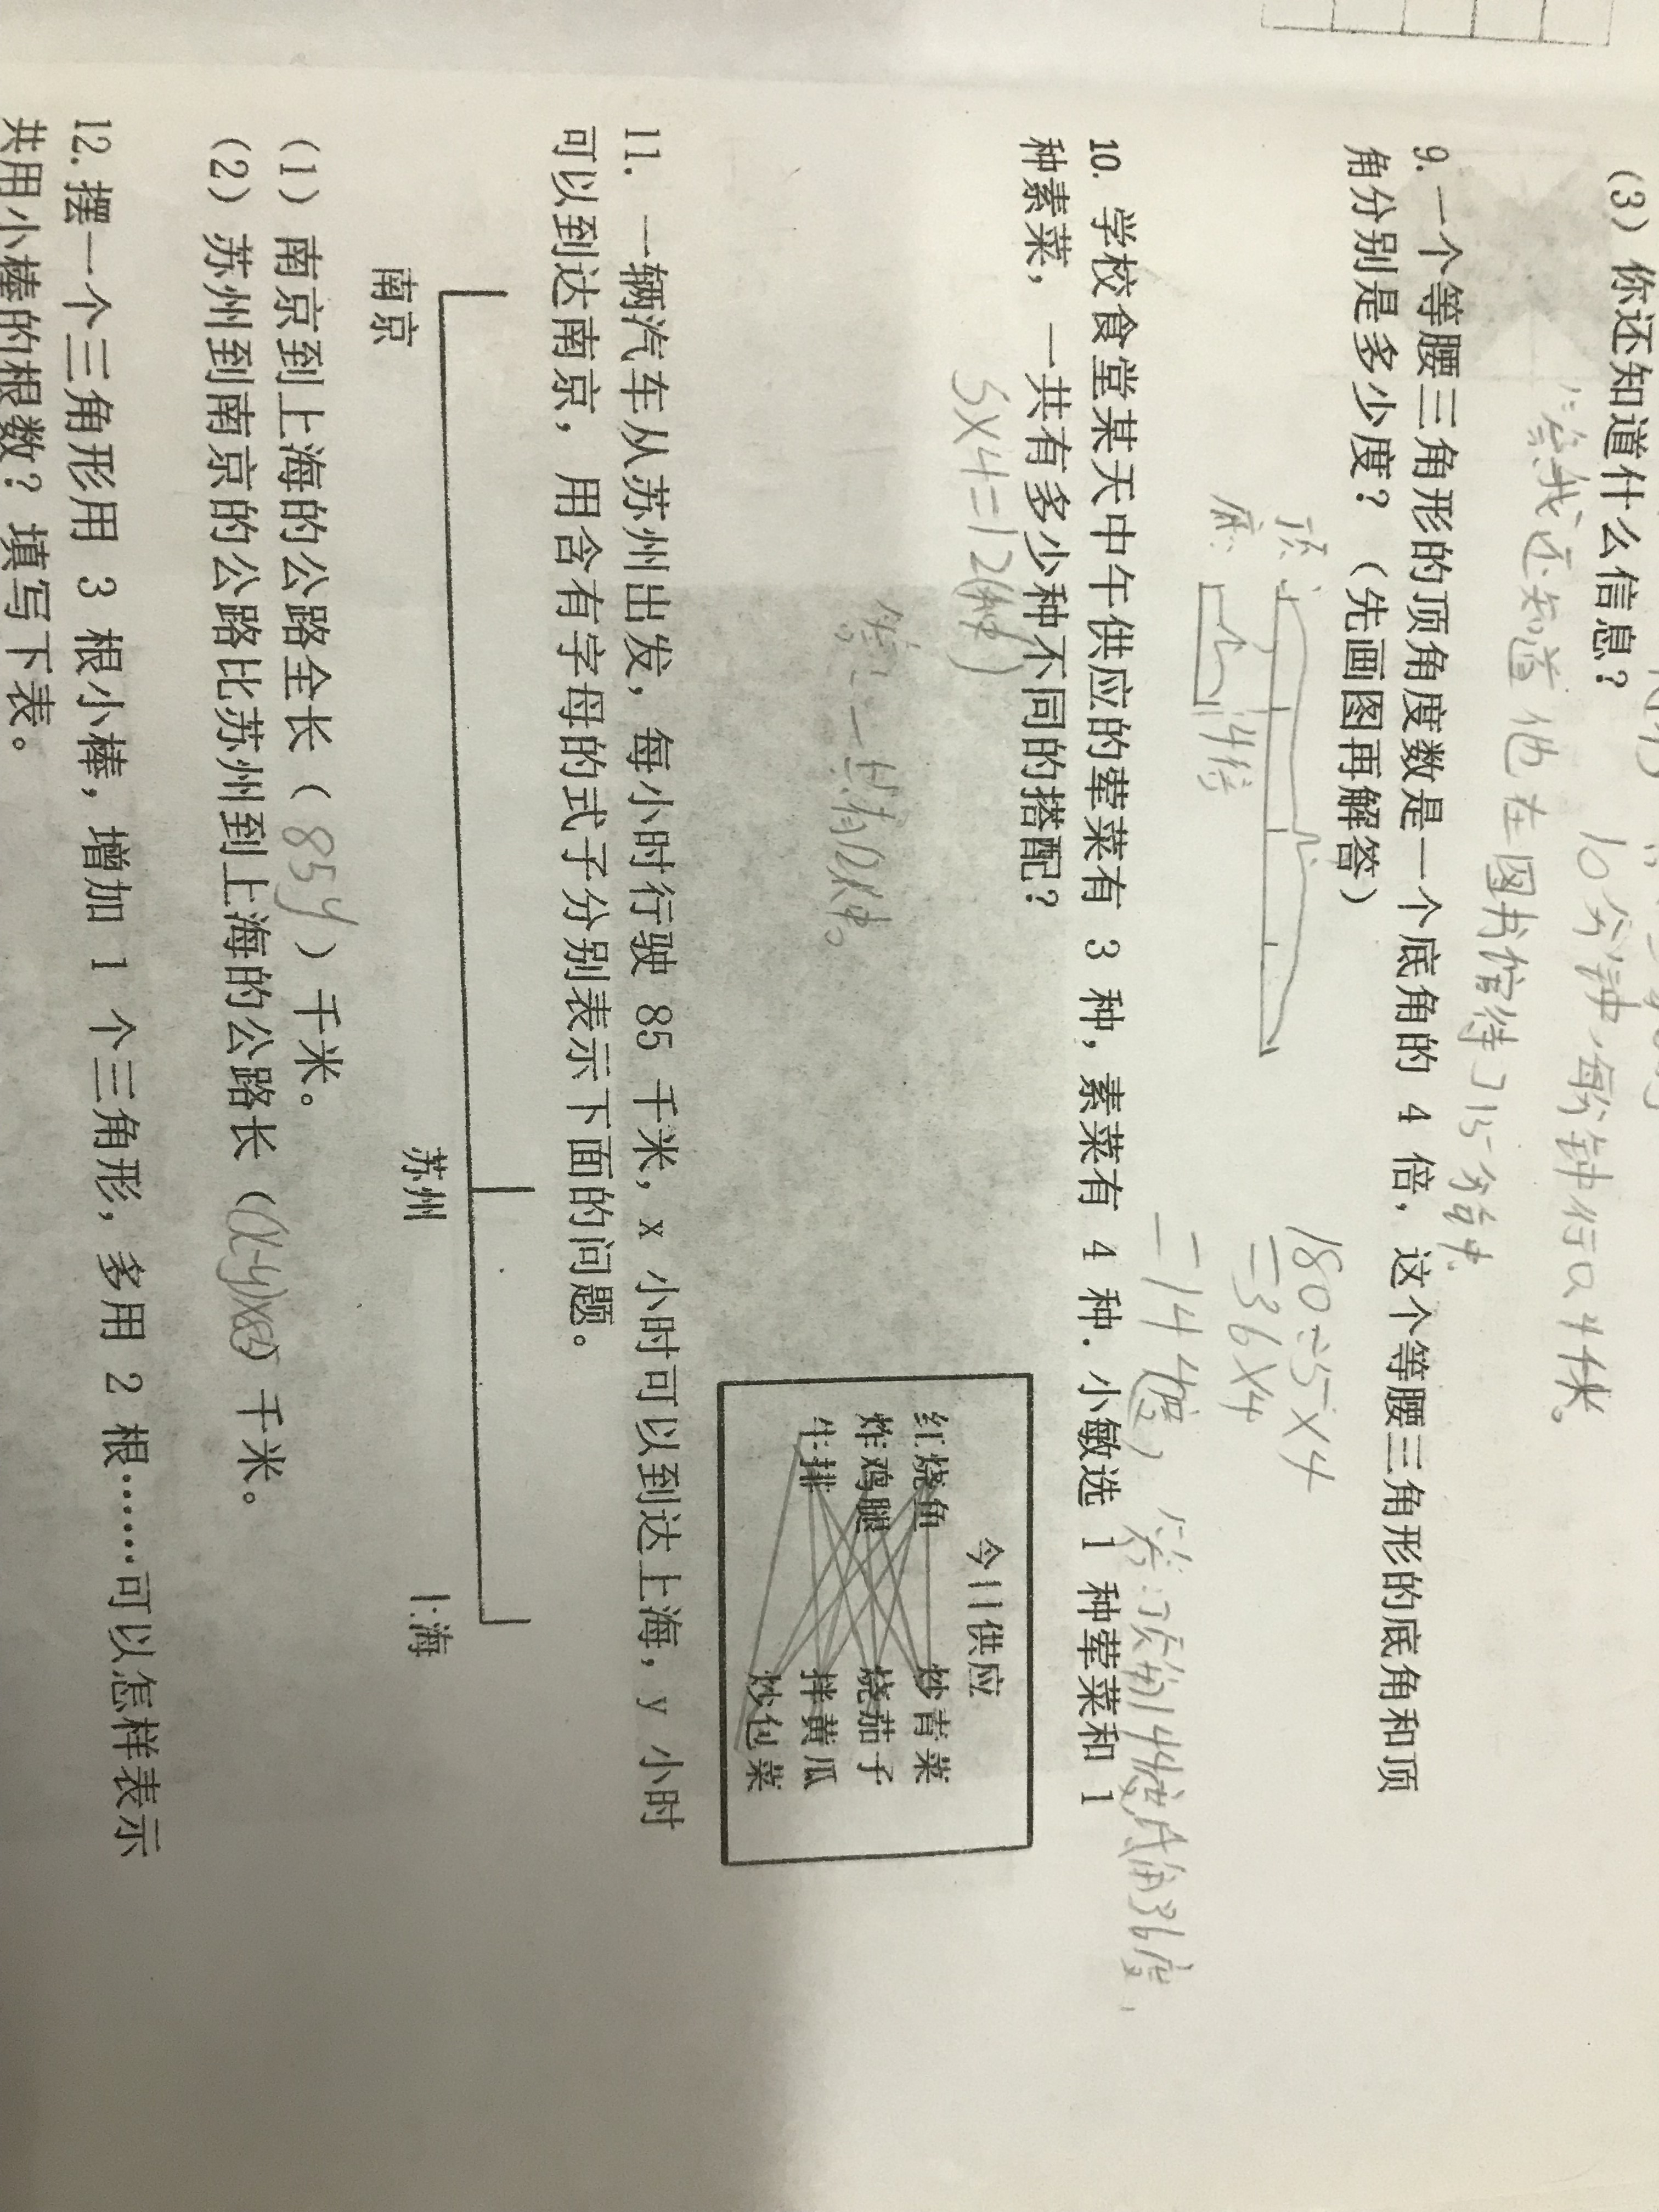 (3) 你还知道什么信息?
10分钟,每分钟行
答:我还知道他在图书馆待了15分钟.
9. 一个等腰三角形的顶角度数是一个底角的 4 倍, 这个等腰三角形的底角和顶
角分别是多少度? (先画图再解答)
顶:
底:
4倍
180÷5×4
=36×4
=144(度)
答:顶角144度,底角36度.
10. 学校食堂某天中午供应的荤菜有 3 种, 素菜有 4 种. 小敏选 1 种荤菜和 1
种素菜, 一共有多少种不同的搭配?
3×4=12(种)
答:一共有12种。
今日供应
红烧鱼 炒青菜
炸鸡腿 烧茄子
牛排 拌黄瓜
炒包菜
11. 一辆汽车从苏州出发, 每小时行驶 85 千米, x 小时可以到达上海, y 小时
可以到达南京, 用含有字母的式子分别表示下面的问题。
南京 苏州 上海
(1) 南京到上海的公路全长 ( 85y ) 千米。
(2) 苏州到南京的公路比苏州到上海的公路长 ( (x-y)×85 ) 千米。
12. 摆一个三角形用 3 根小棒, 增加 1 个三角形, 多用 2 根……可以怎样表示
共用小棒的根数? 填写下表。